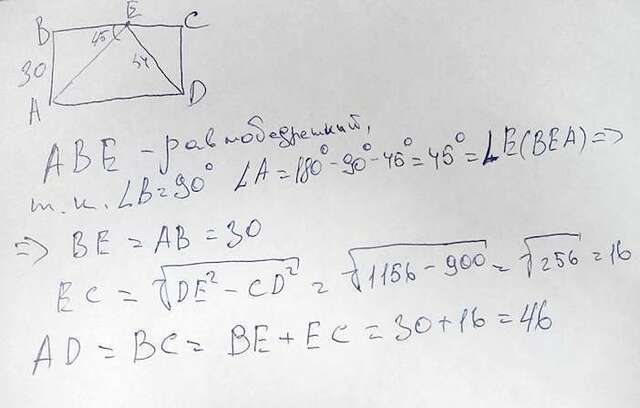 B E C
45
30 34
A D
ABE - равнобедренный,
т.к. ∠B=90° ∠A=180°-90°-45°=45°=∠E(BEA)=>
=> BE = AB = 30
EC = √DE²-CD² = √1156-900 = √256 = 16
AD = BC = BE + EC = 30+16 = 46